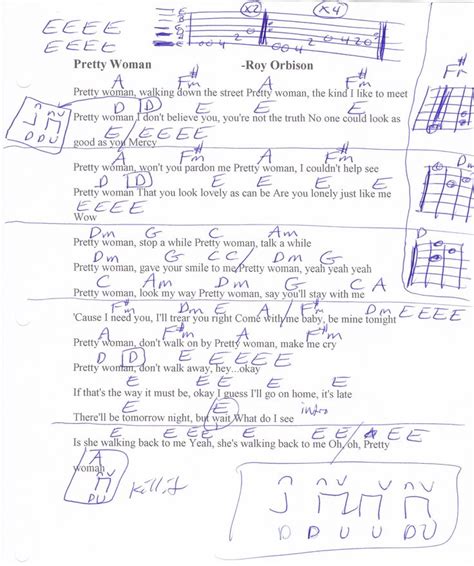 X2 X4
E E E E
E E E E
E B G D A E
0 0 4 2 0 0 4 2 0 4 2
Pretty Woman -Roy Orbison
A F#m A F#m
Pretty woman, walking down the street Pretty woman, the kind I like to meet
D D
Pretty woman I don't believe you, you're not the truth No one could look as
E E E E E
good as you Mercy
D D U
A F#m A F#m
Pretty woman, won't you pardon me Pretty woman, I couldn't help see
D D E E E E
Pretty woman That you look lovely as can be Are you lonely just like me
E E E E
Wow
Dm G C Am
Pretty woman, stop a while Pretty woman, talk a while
Dm G C C Dm G
Pretty woman, gave your smile to me Pretty woman, yeah yeah yeah
C Am Dm G C A
Pretty woman, look my way Pretty woman, say you'll stay with me
F#m Dm E A F#m Dm E E E E
'Cause I need you, I'll trear you right Come with me baby, be mine tonight
A F#m A F#m
Pretty woman, don't walk on by Pretty woman, make me cry
D D E E E E
Pretty woman, don't walk away, hey...okay
E E E E E
If that's the way it must be, okay I guess I'll go on home, it's late
E E intro
There'll be tomorrow night, but wait What do I see
E E E E E E E
Is she walking back to me Yeah, she's walking back to me Oh, oh, Pretty
A
woman
D U
Kill it
D D U U D U
F#m
Dm
D